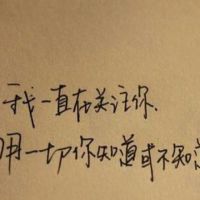 我一直在关注你、
用一切你知道或不知道